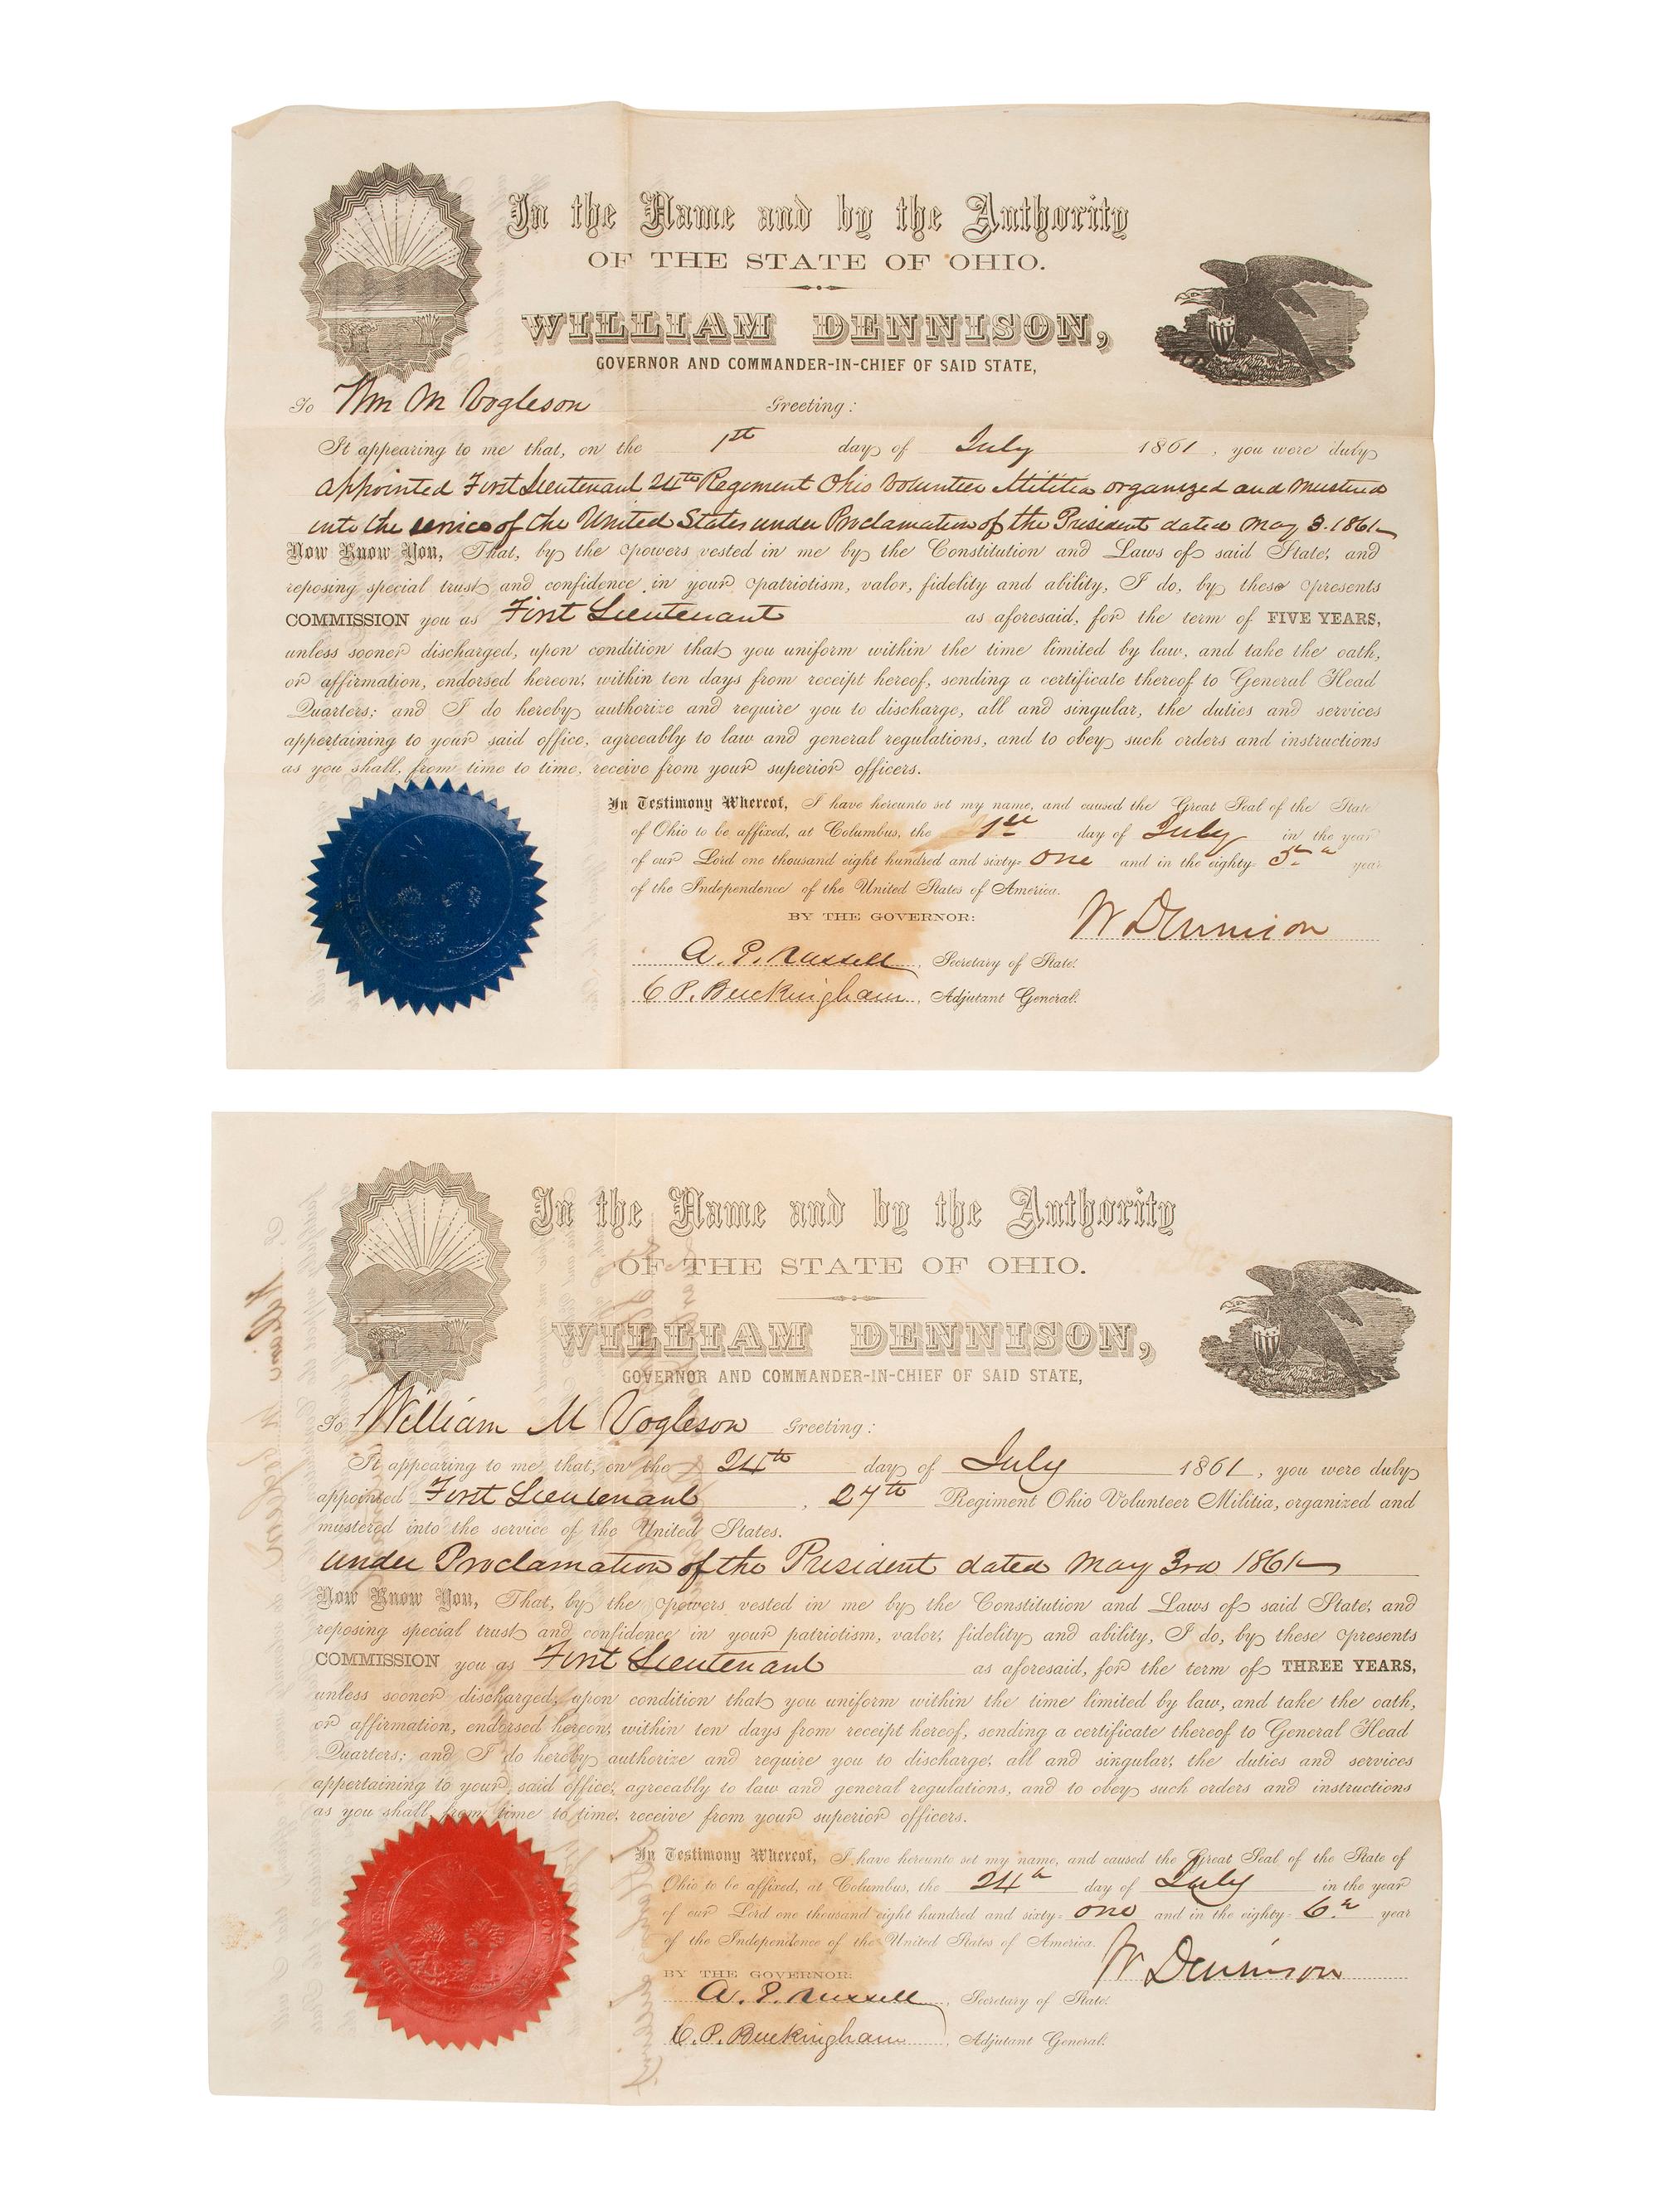 In the Name and by the Authority
OF THE STATE OF OHIO.
WILLIAM DENNISON,
GOVERNOR AND COMMANDER-IN-CHIEF OF SAID STATE,
To Wm M Vogleson Greeting:
It appearing to me that, on the 1st day of July 1861, you were duly
appointed First Lieutenant 24th Regiment Ohio Volunteer Militia organized and mustered
into the service of the United States under Proclamation of the President dated May 3. 1861
Now Know You, That, by the powers vested in me by the Constitution and Laws of said State, and
reposing special trust and confidence in your patriotism, valor, fidelity and ability, I do, by these presents
COMMISSION you as First Lieutenant as aforesaid, for the term of FIVE YEARS,
unless sooner discharged, upon condition that you uniform within the time limited by law, and take the oath,
or affirmation, endorsed hereon, within ten days from receipt hereof, sending a certificate thereof to General Head
Quarters; and I do hereby authorize and require you to discharge, all and singular, the duties and services
appertaining to your said office, agreeably to law and general regulations, and to obey such orders and instructions
as you shall, from time to time, receive from your superior officers.
In Testimony Whereof, I have hereunto set my name, and caused the Great Seal of the State
of Ohio to be affixed, at Columbus, the 1st day of July in the year
of our Lord one thousand eight hundred and sixty-one and in the eighty-5th year
of the Independence of the United States of America.
BY THE GOVERNOR: W Dennison
A. P. Russell, Secretary of State.
C P. Buckingham, Adjutant General.
In the Name and by the Authority
OF THE STATE OF OHIO.
WILLIAM DENNISON,
GOVERNOR AND COMMANDER-IN-CHIEF OF SAID STATE,
To William M Vogleson Greeting:
It appearing to me that, on the 24th day of July 1861, you were duly
appointed First Lieutenant, 27th Regiment Ohio Volunteer Militia, organized and
mustered into the service of the United States.
under Proclamation of the President dated May 3rd 1861
Now Know You, That, by the powers vested in me by the Constitution and Laws of said State, and
reposing special trust and confidence in your patriotism, valor, fidelity and ability, I do, by these presents
COMMISSION you as First Lieutenant as aforesaid, for the term of THREE YEARS,
unless sooner discharged, upon condition that you uniform within the time limited by law, and take the oath,
or affirmation, endorsed hereon, within ten days from receipt hereof, sending a certificate thereof to General Head
Quarters; and I do hereby authorize and require you to discharge, all and singular, the duties and services
appertaining to your said office, agreeably to law and general regulations, and to obey such orders and instructions
as you shall, from time to time, receive from your superior officers.
In Testimony Whereof, I have hereunto set my name, and caused the Great Seal of the State of
Ohio to be affixed, at Columbus, the 24th day of July in the year
of our Lord one thousand eight hundred and sixty-one and in the eighty-6th year
of the Independence of the United States of America.
BY THE GOVERNOR: W Dennison
A. P. Russell, Secretary of State.
C. P. Buckingham, Adjutant General.